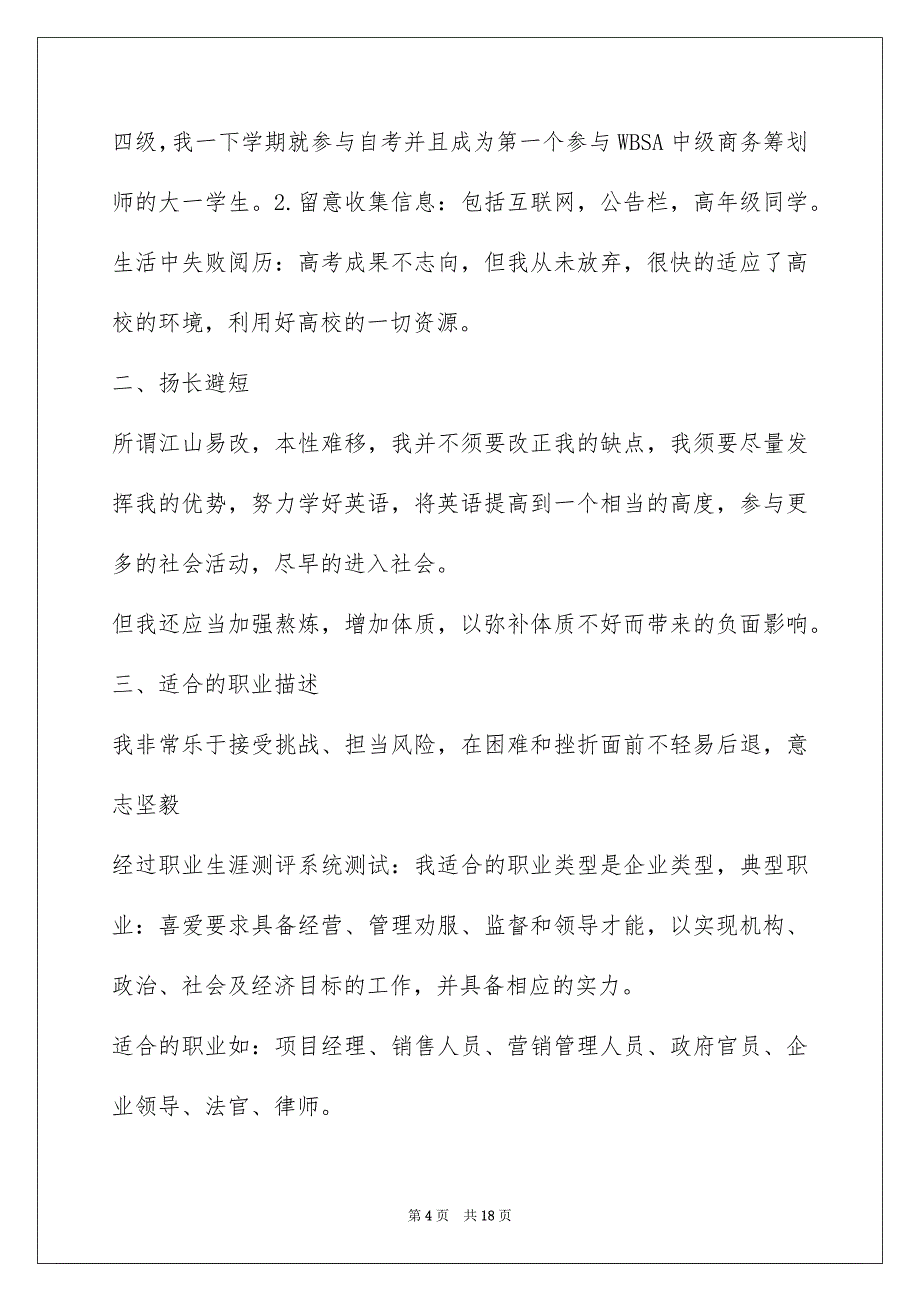 四级，我一下学期就参与自考并且成为第一个参与 WBSA 中级商务筹划
师的大一学生。2.留意收集信息：包括互联网，公告栏，高年级同学。
生活中失败阅历：高考成果不志向，但我从未放弃，很快的适应了高
校的环境，利用好高校的一切资源。
二、扬长避短
所谓江山易改，本性难移，我并不须要改正我的缺点，我须要尽量发
挥我的优势，努力学好英语，将英语提高到一个相当的高度，参与更
多的社会活动，尽早的进入社会。
但我还应当加强熬炼，增加体质，以弥补体质不好而带来的负面影响。
三、适合的职业描述
我非常乐于接受挑战、担当风险，在困难和挫折面前不轻易后退，意
志坚毅
经过职业生涯测评系统测试：我适合的职业类型是企业类型，典型职
业：喜爱要求具备经营、管理劝服、监督和领导才能，以实现机构、
政治、社会及经济目标的工作，并具备相应的实力。
适合的职业如：项目经理、销售人员、营销管理人员、政府官员、企
业领导、法官、律师。
第 4 页 共 18 页